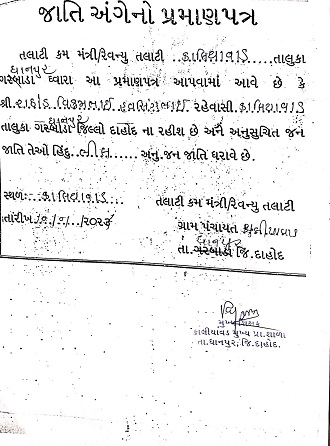 જાતિ અંગેનો પ્રમાણપત્ર
તલાટી કમ મંત્રી/રેવન્યુ તલાટી કાળિયાવાડ તાલુકા
ધાનપુર
ગરબાડા ધ્વારા આ પ્રમાણપત્ર આપવામાં આવે છે કે
શ્રી રાઠોડ વિક્રમભાઈ રહેવાસી કાળિયાવાડ
ધાનપુર
તાલુકા ગરબાડા જિલ્લો દાહોદ ના રહીશ છે અને અનુસુચિત જન
જાતિ તેઓ હિંદુ ભીલ અનુ.જન જાતિ ધરાવે છે.
સ્થળ: કાળિયાવાડ
તલાટી કમ મંત્રી/રેવન્યુ તલાટી
તારીખ
ગ્રામ પંચાયત
ધાનપુર
તા.ગરબાડા જિ.દાહોદ
મુખ્ય શિક્ષક
કાળીયાવડ મુખ્ય પ્રા.શાળા
તા.ધાનપુર, જિ.દાહોદ.